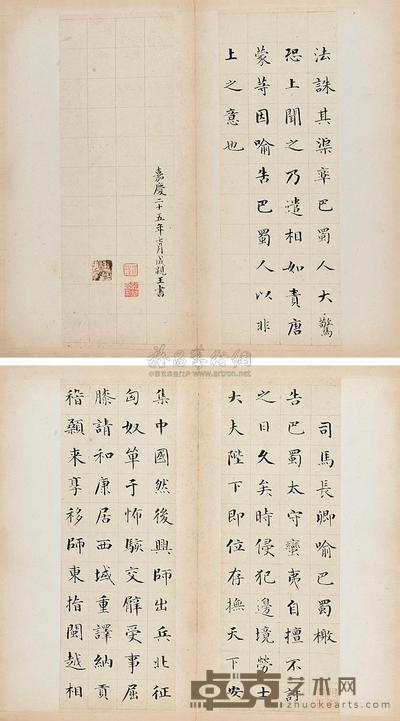 法誅其渠率巴蜀人大驚
恐上聞之乃遣相如責唐
蒙等因喻告巴蜀人以非
上之意也
嘉慶二十五年七月成親王書
司馬長卿喻巴蜀檄
告巴蜀太守蠻夷自擅不討
之日久矣時侵犯邊境勞士
大夫陛下即位存撫天下安
集中國然後興師出兵北征
匈奴單于怖駭交臂受事屈
膝請和康居西域重譯納貢
稽顙來享移師東指閩越相
卓克艺术网